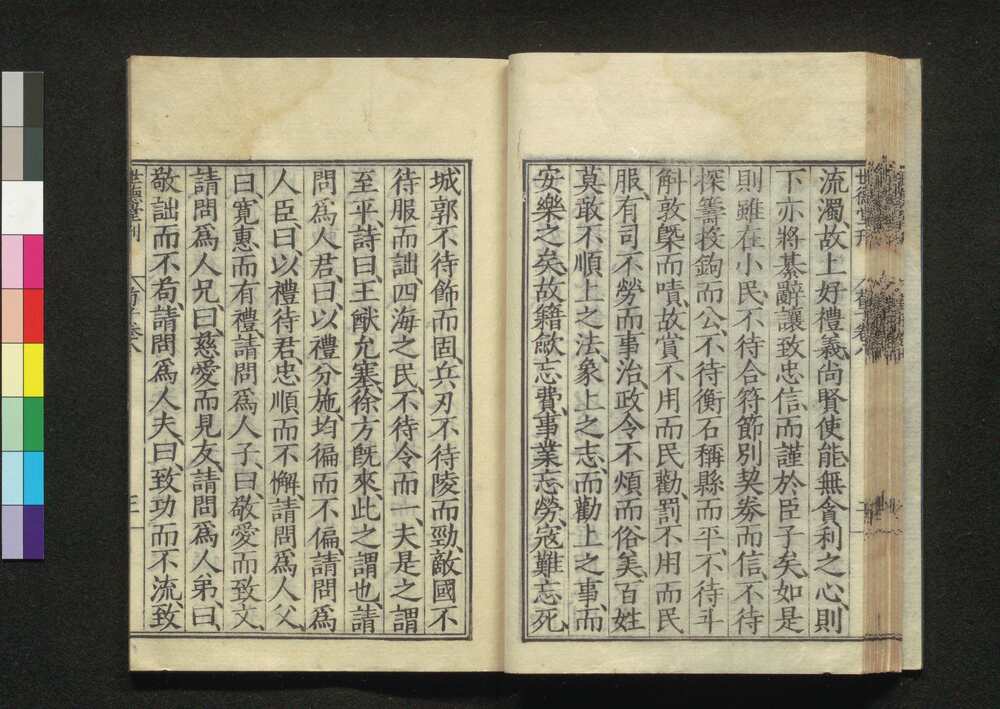 流濁、故上好禮義、尚賢使能、無貪利之心、則
下亦將綦辭讓、致忠信、而謹於臣子矣、如是
則雖在小民、不待合符節、別契券而信、不待
探籌投鉤而公、不待衡石稱縣而平、不待斗
斛敦槩而嘖、故賞不用而民勸、罰不用而民
服、有司不勞而事治、政令不煩而俗美、百姓
莫敢不順上之法、象上之志、而勸上之事、而
安樂之矣、故籍歛忘費、事業忘勞、寇難忘死、
世德堂刊 荀子卷八
城郭不待飾而固、兵刃不待陵而勁、敵國不
待服而詘、四海之民、不待令而一、夫是之謂
至平、詩曰、王猷允塞、徐方旣來、此之謂也、請
問爲人君、曰、以禮分施、均徧而不偏、請問爲
人臣、曰、以禮待君、忠順而不懈、請問爲人父、
曰、寬惠而有禮、請問爲人子、曰、敬愛而致文、
請問爲人兄、曰、慈愛而見友、請問爲人弟、曰、
敬詘而不苟、請問爲人夫、曰、致功而不流、致
世德堂刊 荀子卷八 三